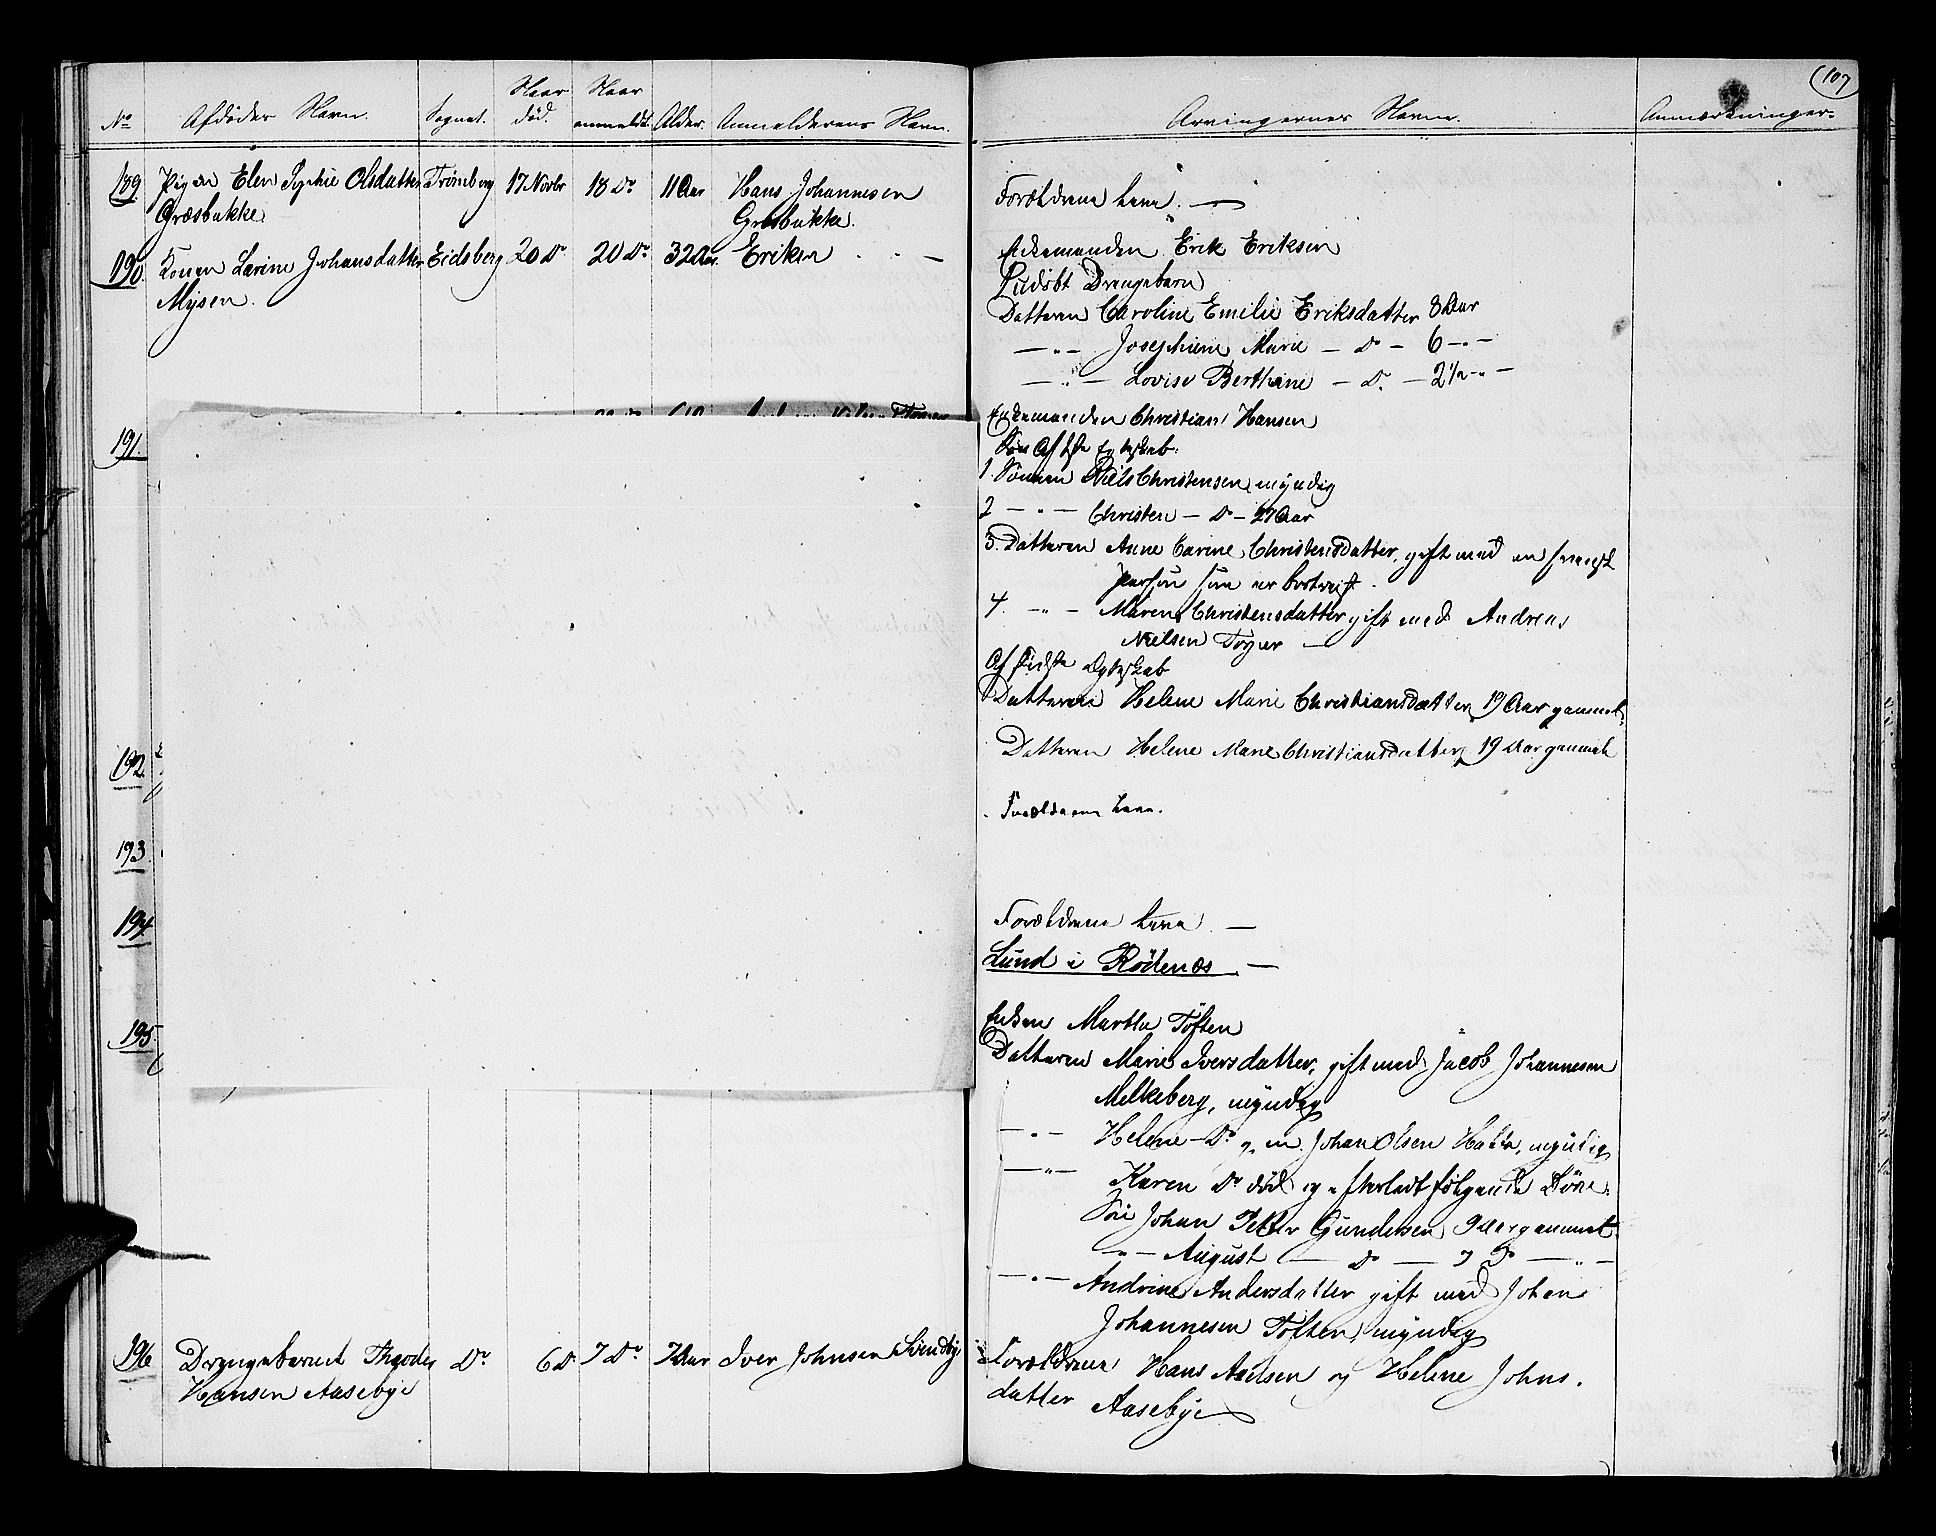 107
No Afdødes Navn. Sognet. Naar død. Naar anmeldt. Alder. Anmelderens Navn. Arvingernes Navne. Anmærkninger
189. Pigen Elen Sophie Olsdatter Trømborg 17 Novbr 18 Do 11 Aar Hans Johannesen
Græsbakke Græsbakke.
Forældrene leve.
190. Konen Larine Johansdatter Eidsberg 20 Do 20 Do 32 Aar Eriksen
Mysen.
Enkemanden Erik Eriksen
Udøbt Drengebarn
Datteren Caroline Emilie Eriksdatter 8 Aar
— " — Josephine Marie — Do — 6 — " —
— " — Lovise Berthine — Do — 2 1/2 — " —
191.
Enkemanden Christian Hansen
Af 1ste Egteskab:
1. Sønnen Niels Christensen, myndig
2 — " — Christen — Do — 27 Aar
3. Datteren Anne Carine Christensdatter, gift med en svensk
person som er bortreist.
4. — " — Maren Christensdatter gift med Andreas
Nielsen
Af sidste Egteskab
Datteren Helene Marie Christiansdatter, 19 Aar gammel.
192
Datteren Helene Marie Christiansdatter, 19 Aar gammel
193
Forældrene leve.
194
Forældrene leve —
Lund i Rødenæs —
195.
Enken Martha Toften
Datteren Marie Iversdatter, gift med Jacob Johannesen
Melkeberg, myndig
— " — Helene — Do g. m. Johan Olsen, myndig
— " — Karen Do død og efterladt følgende Børn:
Søn Johan Petter Gundersen 9 Aar gammel
— " — August — Do — 7 Do — " —
— " — Andrine Andersdatter gift med Johan
Johannesen Toften, myndig
196 Drengebarnet Theodor Do 6 Do 7 Do Aar Iver Johnsen
Hansen Aasebye
Forældrene Hans Nielsen og Helene Johns-
datter Aasebye